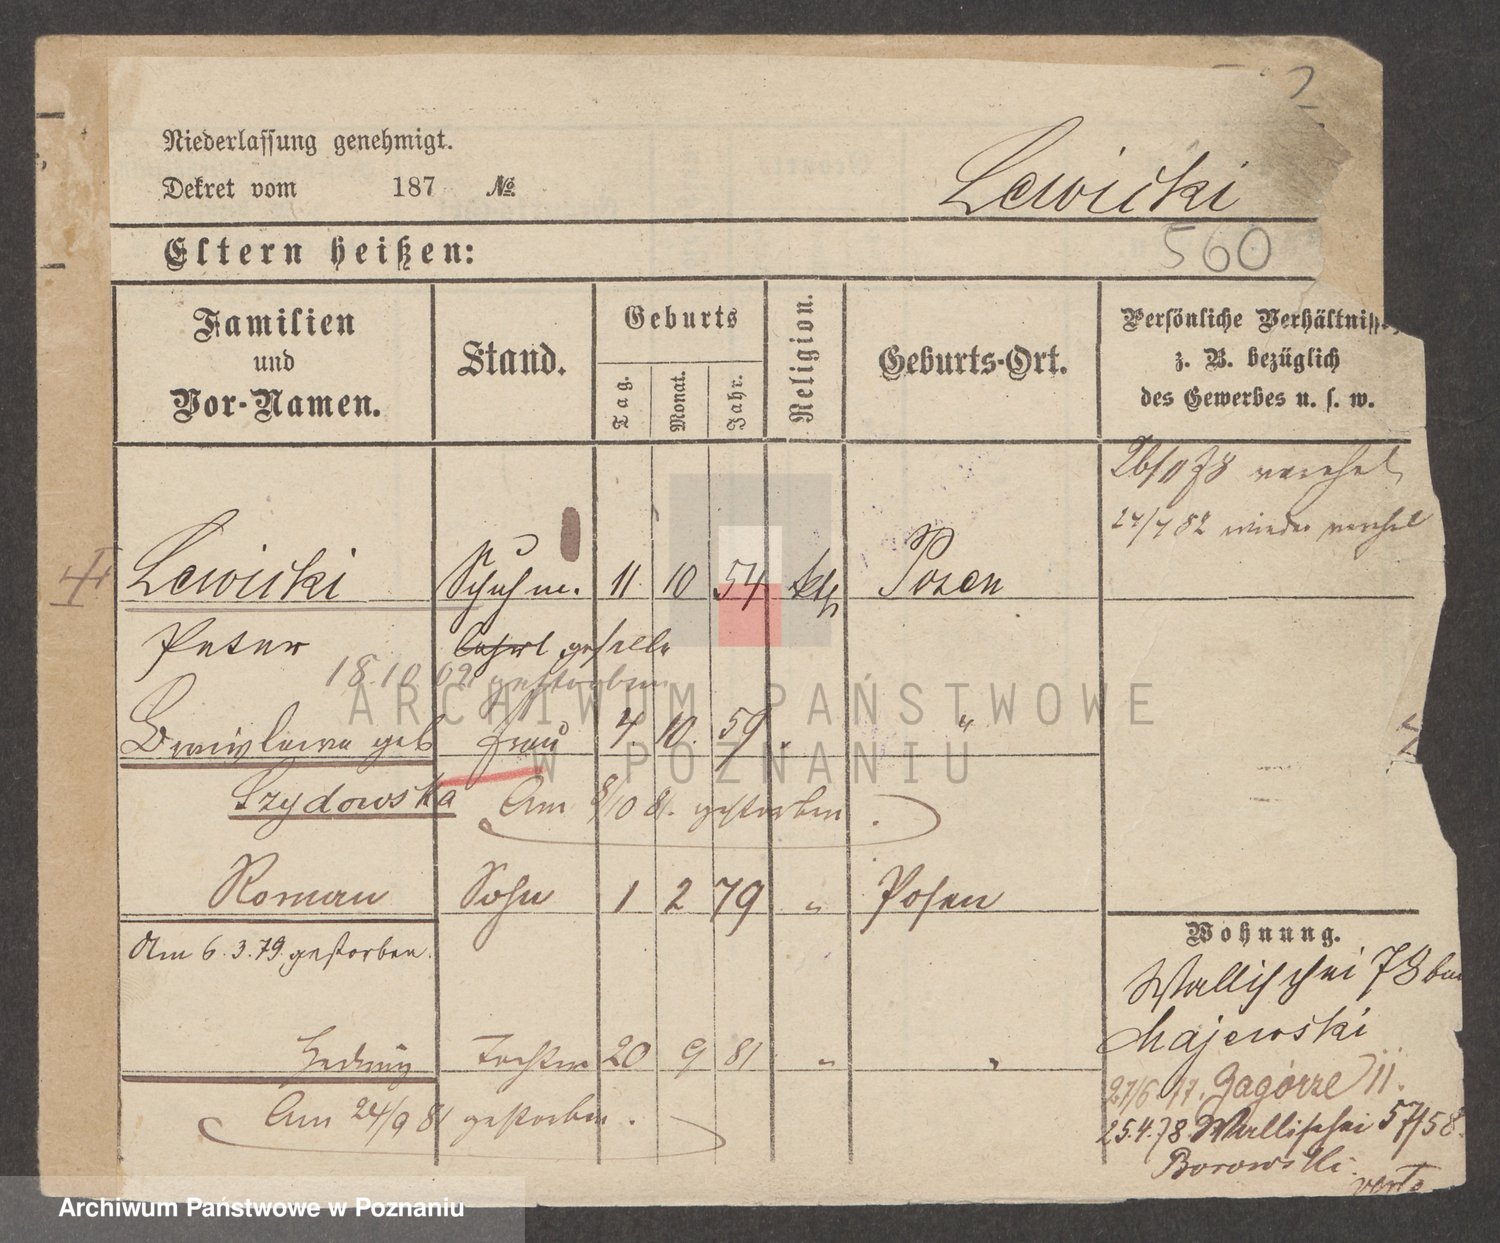 Niederlassung genehmigt.
Dekret vom 187 №
Lewicki
Eltern heißen:
560
Familien und Vor-Namen.
Stand.
Geburts
Tag.
Monat.
Jahr.
Religion.
Geburts-Ort.
Persönliche Verhältniss
z. B. bezüglich
des Gewerbes u. s. w.
verehel
24/7 82 wieder verehel
Lewicki Schuhm. 11. 10 54 kth Posen
Peter geselle
18.10.02 gestorben
geb Frau 4. 10. 59 "
Szydowska Am 8/10 81. gestorben.
Roman Sohn 1 2 79 " Posen
Am 6.3.79 gestorben.
Wohnung.
Wallischei 78 bei
Majewski
Hedwig Tochter 20 9 81 " "
27/6 77. Zagórze 11.
Am 24/9 81 gestorben.
25.4.78 Wallischei 57/58.
Borowski.
verte
ARCHIWUM PAŃSTWOWE
W POZNANIU
Archiwum Państwowe w Poznaniu